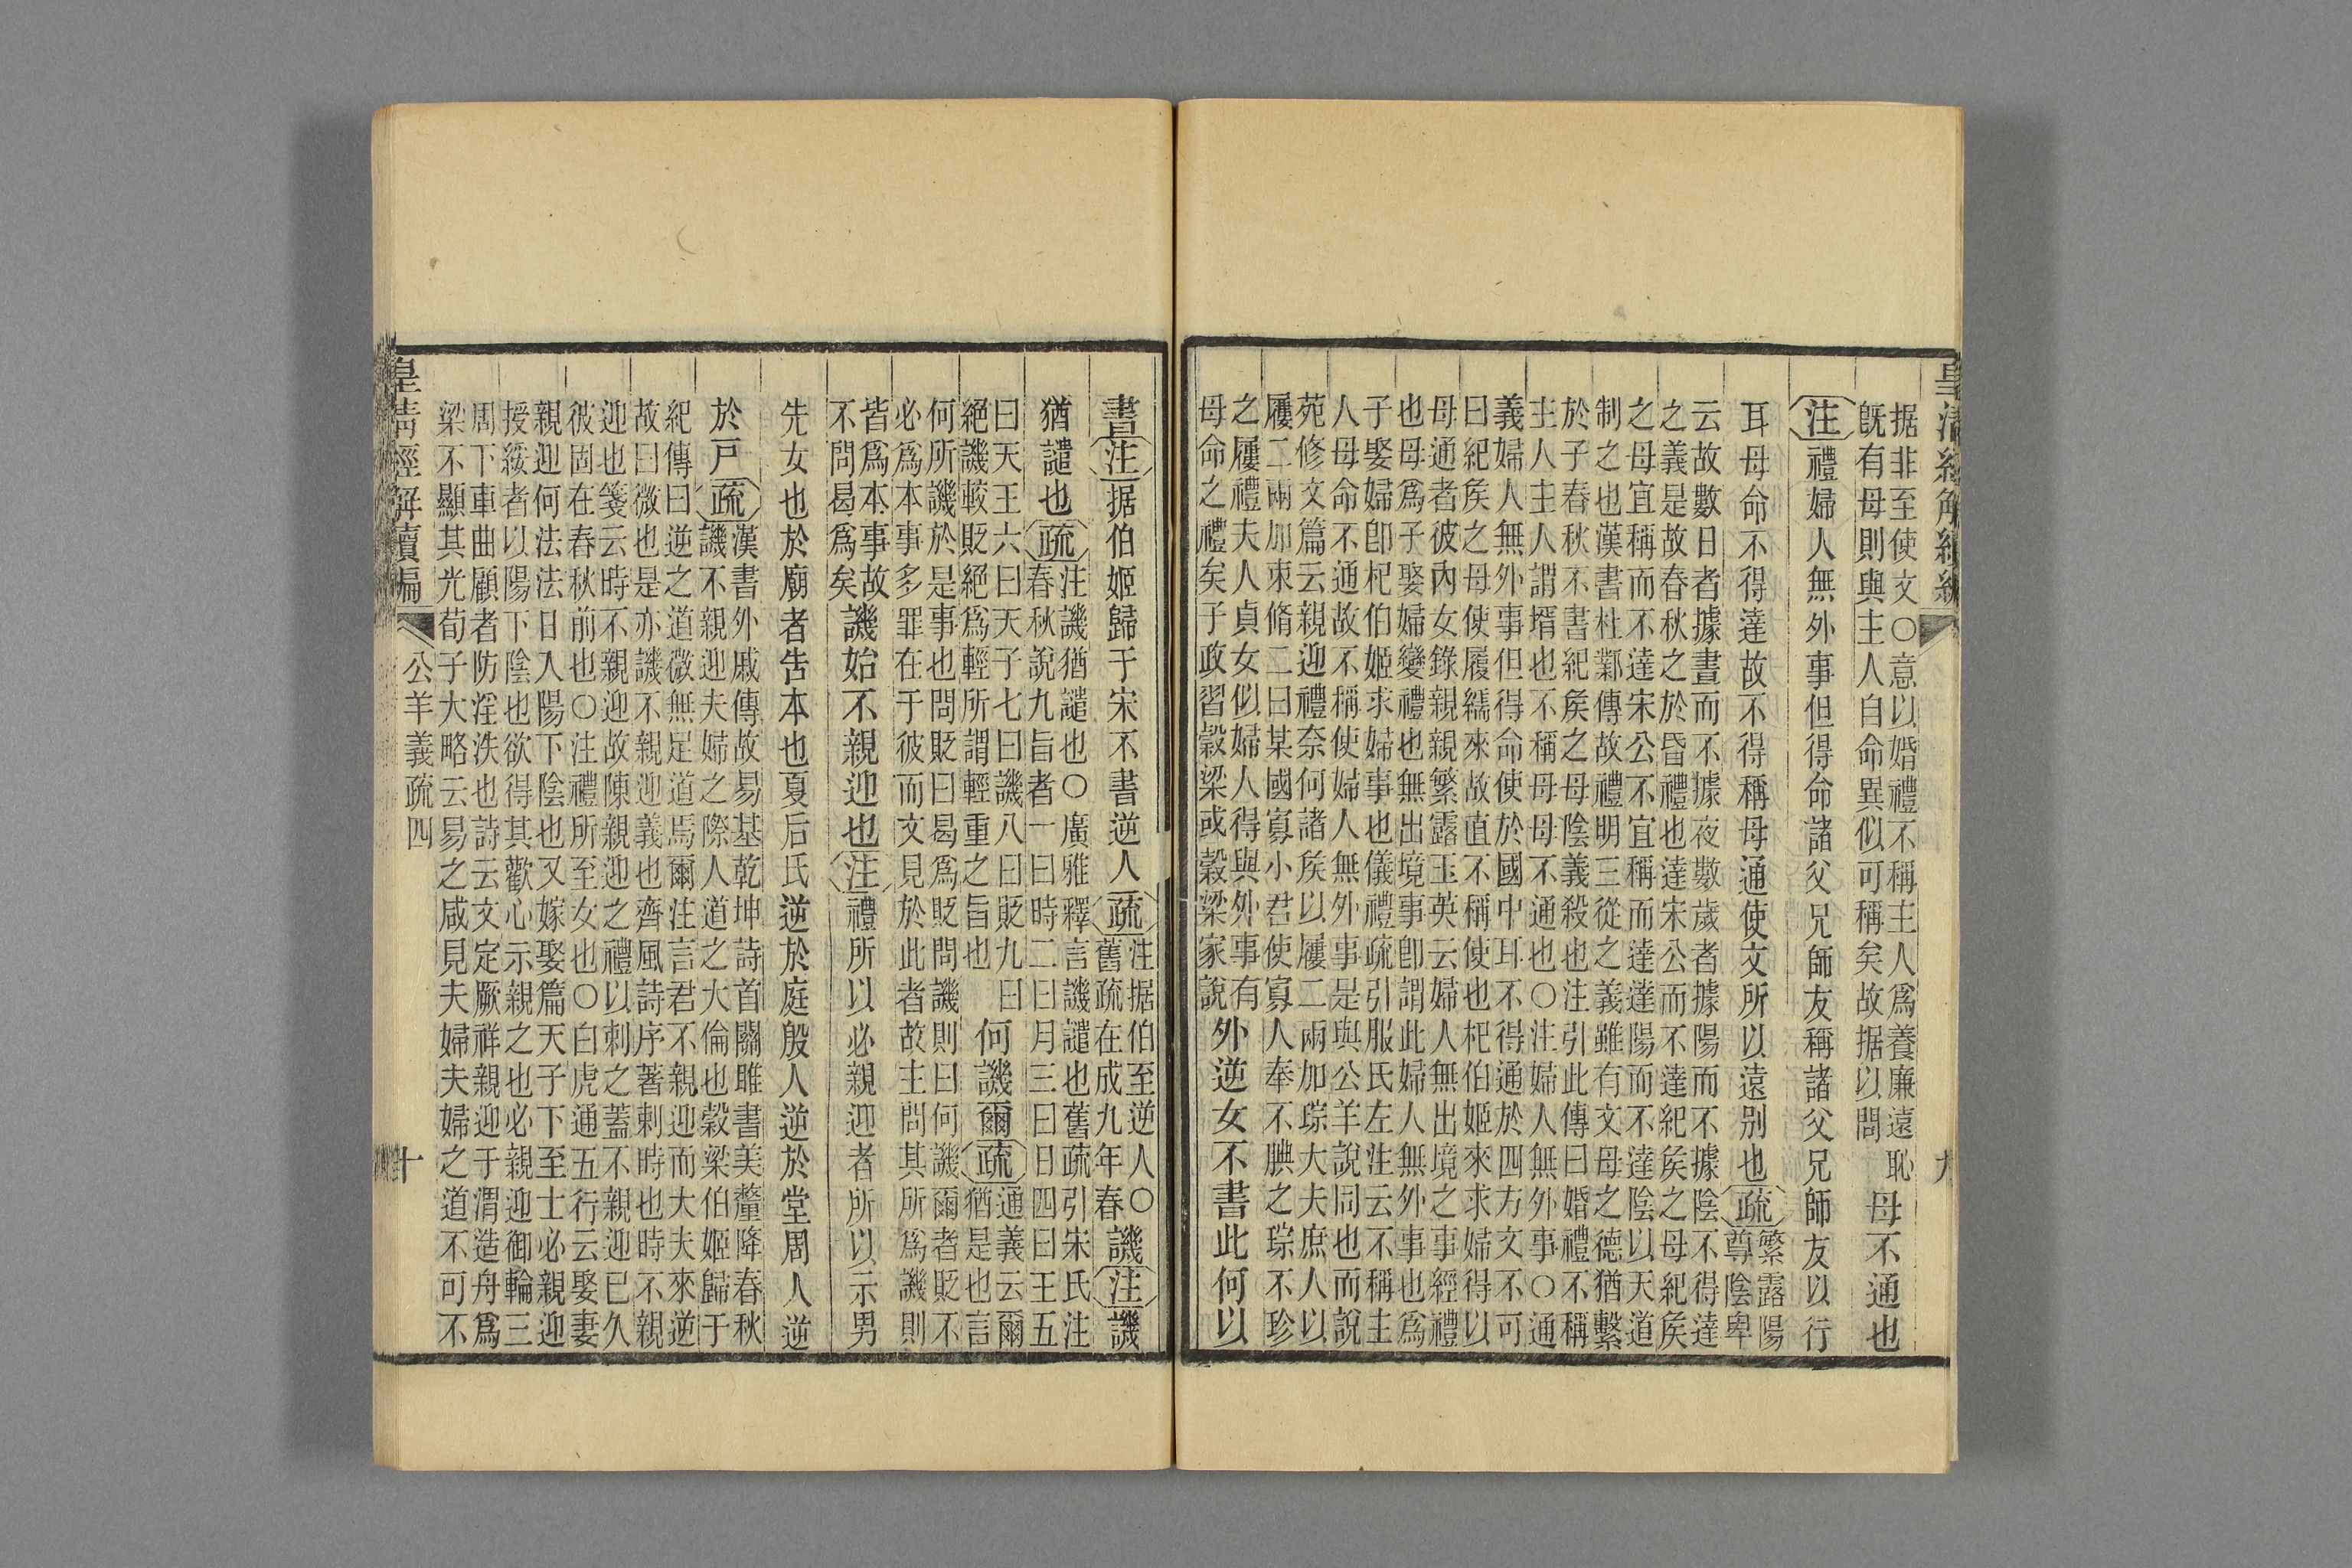 皇清經解續編
九
据非至使文○意以婚禮不稱主人爲養廉遠恥
既有母則與主人自命異似可稱矣故据以問
母不通也
注禮婦人無外事但得命諸父兄師友稱諸父兄師友以行
耳母命不得達故不得稱母通使文所以遠別也疏
繁露陽
尊陰卑
云故數日者據晝而不據夜數歲者據陽而不據陰不得達
之義是故春秋之於昏禮也達宋公而不達紀矦之母紀矦
之母宜稱而不達宋公不宜稱而達達陽而不達陰以天道
制之也漢書杜鄴傳故禮明三從之義雖有文母之德猶繫
於子春秋不書紀矦之母陰義殺也注引此傳曰婚禮不稱
主人主人謂壻也不稱母母不通也○注婦人無外事○通
義婦人無外事但得命使於國中耳不得通於四方文不可
曰紀矦之母使履繻來故直不稱使也杞伯姬來求婦得以
母通者彼內女錄親親繁露玉英云婦人無出境之事經禮
也母爲子娶婦變禮也無出境事卽謂此婦人無外事也爲
子娶婦卽杞伯姬求婦事也儀禮疏引服氏左注云不稱主
人母命不通故不稱使婦人無外事是與公羊說同也而說
苑修文篇云親迎禮奈何諸矦以屨二兩加琮大夫庶人以
屨二兩加束脩二曰某國寡小君使寡人奉不腆之琮不珍
之屨禮夫人貞女似婦人得與外事有
母命之禮矣子政習穀梁或穀梁家說
外逆女不書此何以
書注据伯姬歸于宋不書逆人疏
注据伯至逆人○
舊疏在成九年春
譏注譏
猶譴也疏
注譏猶譴也○廣雅釋言譏譴也舊疏引朱氏注
春秋說九旨者一曰時二曰月三曰日四曰王五
曰天王六曰天子七曰譏八曰貶九曰
絕譏較貶絕爲輕所謂輕重之旨也
何譏爾疏
通義云爾
猶是也言
何所譏於是事也問貶曰曷爲貶問譏則曰何譏爾者貶不
必爲本事多罪在于彼而文見於此者故主問其所爲譏則
皆爲本事故
不問曷爲矣
譏始不親迎也注禮所以必親迎者所以示男
先女也於廟者告本也夏后氏逆於庭殷人逆於堂周人逆
於戶疏
漢書外戚傳故易基乾坤詩首關雎書美釐降春秋
譏不親迎夫婦之際人道之大倫也穀梁伯姬歸于
紀傳曰逆之道微無足道焉爾注言君不親迎而大夫來逆
故曰微也是亦譏不親迎義也齊風詩序著刺時也時不親
迎也箋云時不親迎故陳親迎之禮以刺之蓋不親迎已久
彼固在春秋前也○注禮所至女也○白虎通五行云娶妻
親迎何法法日入陽下陰也又嫁娶篇天子下至士必親迎
授綏者以陽下陰也欲得其歡心示親之也必親迎御輪三
周下車曲顧者防淫泆也詩云文定厥祥親迎于渭造舟爲
梁不顯其光荀子大略云易之咸見夫婦夫婦之道不可不
皇清經解續編
公羊義疏四
十